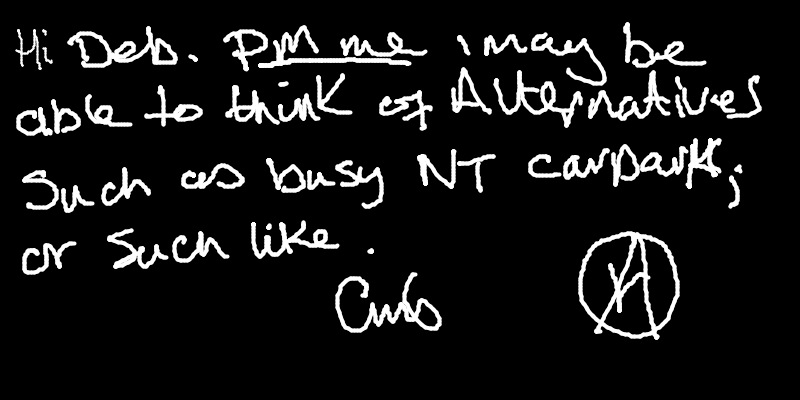 Hi Deb. PM me i may be
able to think of Alternatives
Such as busy NT carpark;
or such like.